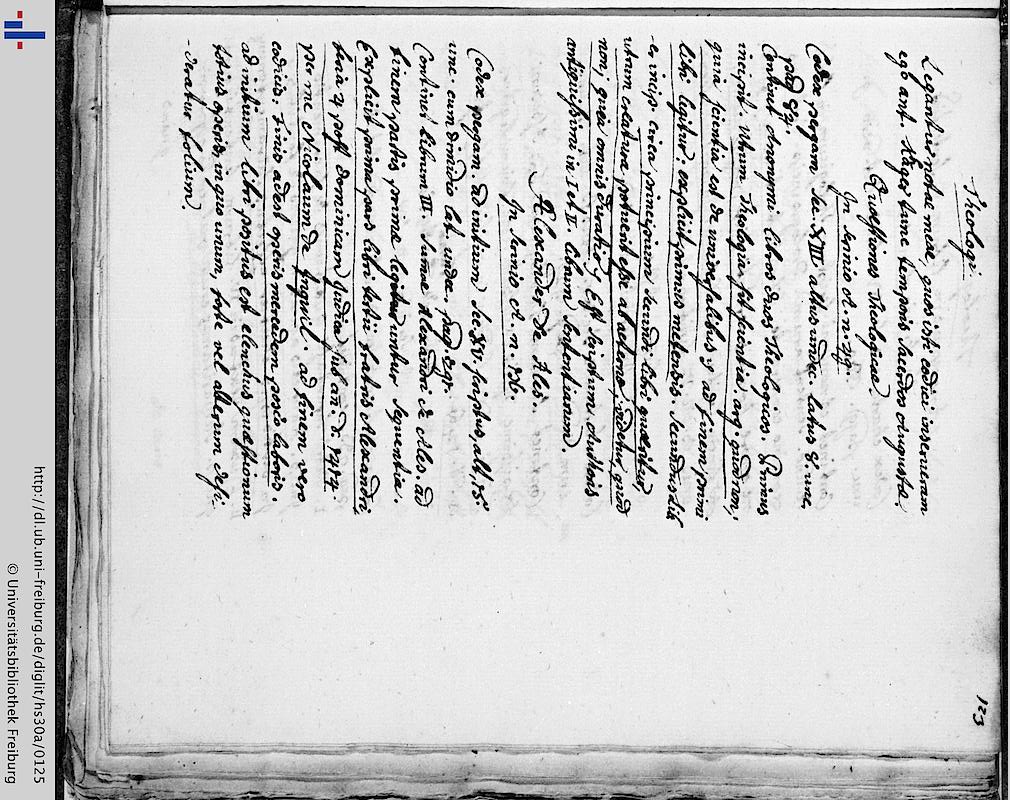 Theologi.
123
Legantur notae meae, quas isti codici inserueram
ego ant Steyer tunc temporis sacerdos Augustae.
Quaestiones Theologicae.
In scrinio d. n. 29.
Codex pergam. sec. XIII altus undec. latus 8. unc,
pag 82.
Continet Anonymi libros duos Theologicos. Primus
incipit. Utrum Theologia sit scientia arg. quidem,
quia scientia est de universalibus &c ad finem primi
libri legitur: explicit primus metensis. secundus lib
-er, incip. circa principium secundi libri quaeritur,
utrum creatura potuerit esse ab aeterno, videtur, quod
non; quia omnis duratio &c Est scriptum Authoris
antiquissimi in I et II. librum sententiarum.
Alexander De Ales.
In scrinio d. n. 26.
Codex pergam. ad initium sec XV. scriptus, alt, 15.
unc. cum dimidio lat. undec. pag
Continet librum III. summae Alexandri de Ales. ad
finem partis primae leguntur sequentia.
Explicit prima pars libri tertii fratris Alexandri
feria 4 post dominicam Judica sub an. D.
per me Nicolaum de Inguil. ad finem vero
codicis: Finis adest operis mercedem posco laboris.
ad initium libri positus est elenchus quaestionum
totius operis, in quo unum, forte vel alterum desi-
-deratur folium.
http://dl.ub.uni-freiburg.de/diglit/hs30a/0125
© Universitätsbibliothek Freiburg